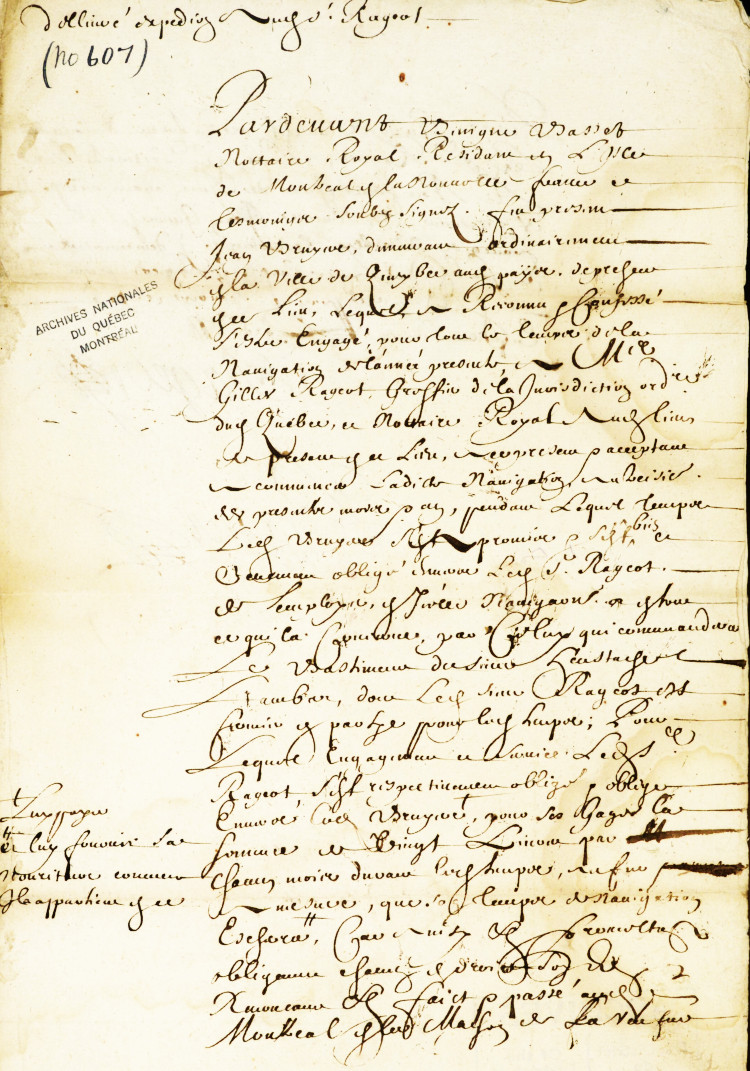 dellivré expedion aud sr. Rageot
(no 607)
Pardevant Benigne Basset
Nottaire Royal Residant en L'Isle
de Montreal en la Nouvelle france et
tesmoings soubz signez. fut present
Jean Bruyere, demeurant ordinairement
en la Ville de Quebec aud pays, de present
en ce Lieu, Lequel a Reconnu et Confessé
s'estre Engagé, pour tout le temps de la
Navigation de l'année presente, a Mtre
Gilles Rageot, Greffier de la Jurisdiction ordre
dud Québec, et Nottaire Royal aud lieu,
de present en ce Lieu, a ce present et acceptant
a commencer ladicte Navigation, au
des presents mois et an, pendant Lequel temps
Led Bruyere s'est promis et s'est bien et
obligé Envers Led Sr. Rageot.
de l'employer, en Navigaons. et en tout
ce qui la Concerne, par Celuy qui commandera
Le Bastiment du sieur Eustache
Lambert, dont Led sieur Rageot est
fermier en partye pour led temps; Pour
Lequel Engagement et service Led Sr
Rageot, s'est respectivement obligé et oblige
Envers led Bruyere, pour ses Gages la
somme de Vingt Livres par
chacun mois durant led temps, au fur
a mesure, que le temps de Navigation
Eschera, Car Ainsy &c Promettant
obligeant chacun en droit soy &c
Renonceant &c faict et passé aud
Montreal en la Maison de La veufve
ARCHIVES NATIONALES
DU QUÉBEC
MONTRÉAL
Luy payer
et luy fournir sa
Nouriture comme
Il appartient en ce